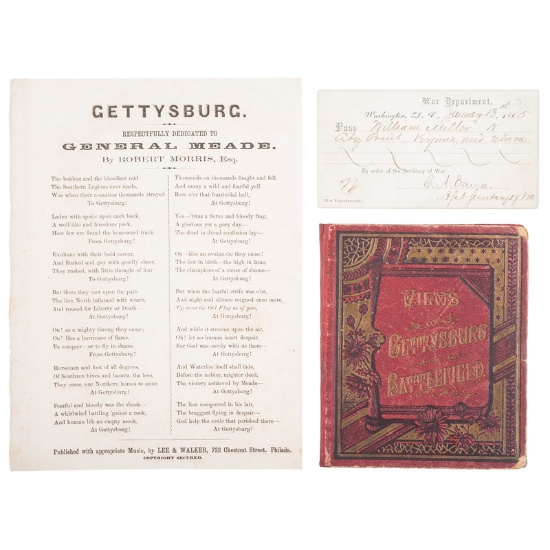 GETTYSBURG.
RESPECTFULLY DEDICATED TO
GENERAL MEADE.
By ROBERT MORRIS, Esq.
The boldest and the bloodiest raid
The Southern Legions ever made,
Was when their countless thousands strayed
To Gettysburg!
Laden with spoils upon each back,
A wolf-like and ferocious pack,
How few are found the homeward track
From Gettysburg!
Exultant with their bold career,
And flushed and gay with goodly cheer,
They rushed, with little thought of fear
To Gettysburg!
But there they met upon the path
The fierce North inflamed with wrath,
And roused for Liberty or Death—
At Gettysburg!
On! as a mighty throng they came;
On! like a hurricane of flame,
To conquer—or to fly in shame
From Gettysburg!
Horsemen and foot of all degrees,
Of Southern hives and human bees,
They came, our Northern homes to seize
At Gettysburg!
Fearful and bloody was the shock—
A whirlwind battling 'gainst a rock,
And human life an empty mock,
At Gettysburg!
Thousands on thousands fought and fell,
And many a wild and fearful yell
Rose o'er that fratricidal hell,
At Gettysburg!
Yes—'twas a fierce and bloody fray,
A glorious yet a gory day—
The dead in dread confusion lay—
At Gettysburg!
On—like an avalanche they came!
The hero in birth—the high in fame,
The champions of a cause of shame—
At Gettysburg!
But when the fearful strife was o'er,
And might and silence reigned once more,
Up went the Old Flag as of yore,
At Gettysburg!
And while it streams upon the air,
Oh! let no human heart despair,
For God was surely with us there—
At Gettysburg!
And Waterloo itself shall fade,
Before the nobler, mightier deed,
The victory achieved by Meade—
At Gettysburg!
The lion conquered in his lair,
The braggart flying in despair—
God help the souls that perished there—
At Gettysburg!
Published with appropriate Music, by LEE & WALKER, 722 Chestnut Street. Philada.
COPYRIGHT SECURED.
War Department,
Washington, D. C., January 13, 1865
Pass William Miller
City Point, Virginia, and return
By order of the Secretary of War
C. A. Dana
VIEWS
OF
GETTYSBURG
BATTLEFIELD.